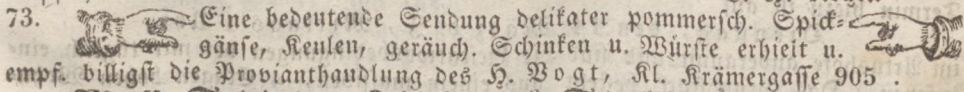 73. Eine bedeutende Sendung delikater pommersch. Spick-
gänse, Keulen, geräuch. Schinken u. Würste erhielt u.
empf. billigst die Provianthandlung des H. Vogt, Kl. Krämergasse 905 .